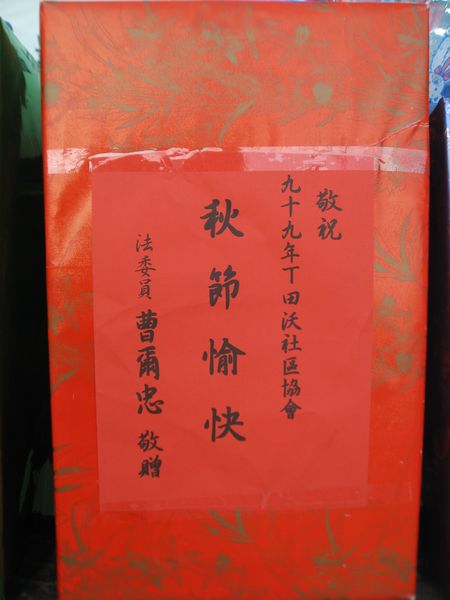 敬祝
九十九年丅田沃社區協會
秋節愉快
法委員曹爾忠敬贈